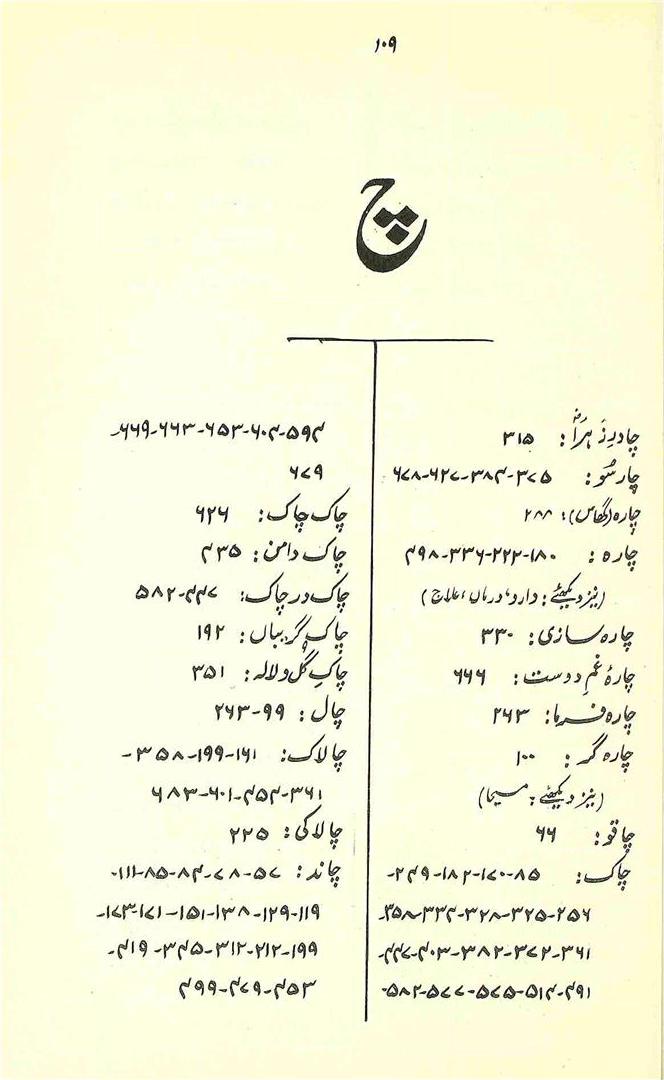 ۱۰۹
چ
چادرِ زہرا: ۳۱۵
چارسُو: ۳۷۵-۳۸۴-۶۲۷-۶۷۸
چارہ (گھاس): ۲۸۸
چارہ: ۱۸۰-۲۲۲-۳۳۶-۴۹۸
(نیز دیکھئے: دارو، درماں، علاج)
چارہ سازی: ۳۳۰
چارۂ غمِ دوست: ۶۶۶
چارہ فرما: ۲۶۳
چارہ گر: ۱۰۰
(نیز دیکھئے: مسیحا)
چاقو: ۶۶
چاک: ۸۵-۱۷۰-۱۸۲-۲۴۹-
۲۵۶-۳۲۵-۳۲۸-۳۳۴-۳۵۸-
۳۶۱-۳۷۲-۳۸۲-۴۰۳-۴۴۷-
۴۹۱-۵۱۴-۵۷۵-۵۷۷-۵۸۲-
۵۹۴-۶۰۴-۶۵۳-۶۶۳-۶۶۹-
۶۷۹
چاک چاک: ۶۲۶
چاک دامن: ۴۳۵
چاک در چاک: ۴۴۷-۵۸۲
چاکِ گریباں: ۱۹۲
چاکِ گل و لالہ: ۳۵۱
چال: ۹۹-۲۶۳
چالاک: ۱۶۱-۱۹۹-۳۵۸-
۳۶۱-۴۵۴-۶۰۱-۶۸۳
چالاکی: ۲۲۵
چاند: ۵۷-۷۸-۸۴-۸۵-۱۱۱-
۱۱۹-۱۲۹-۱۳۸-۱۵۱-۱۷۱-۱۷۳-
۱۹۹-۲۱۲-۳۱۲-۳۴۵-۴۱۹-
۴۵۳-۴۷۹-۴۹۹